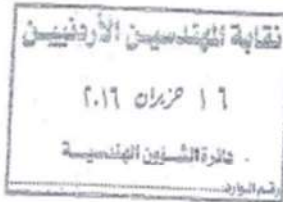 نقابة المهندسين الأردنيين
١٦ حزيران ٢٠١٦
دائرة الشؤون الهندسية
رقم الوارد: